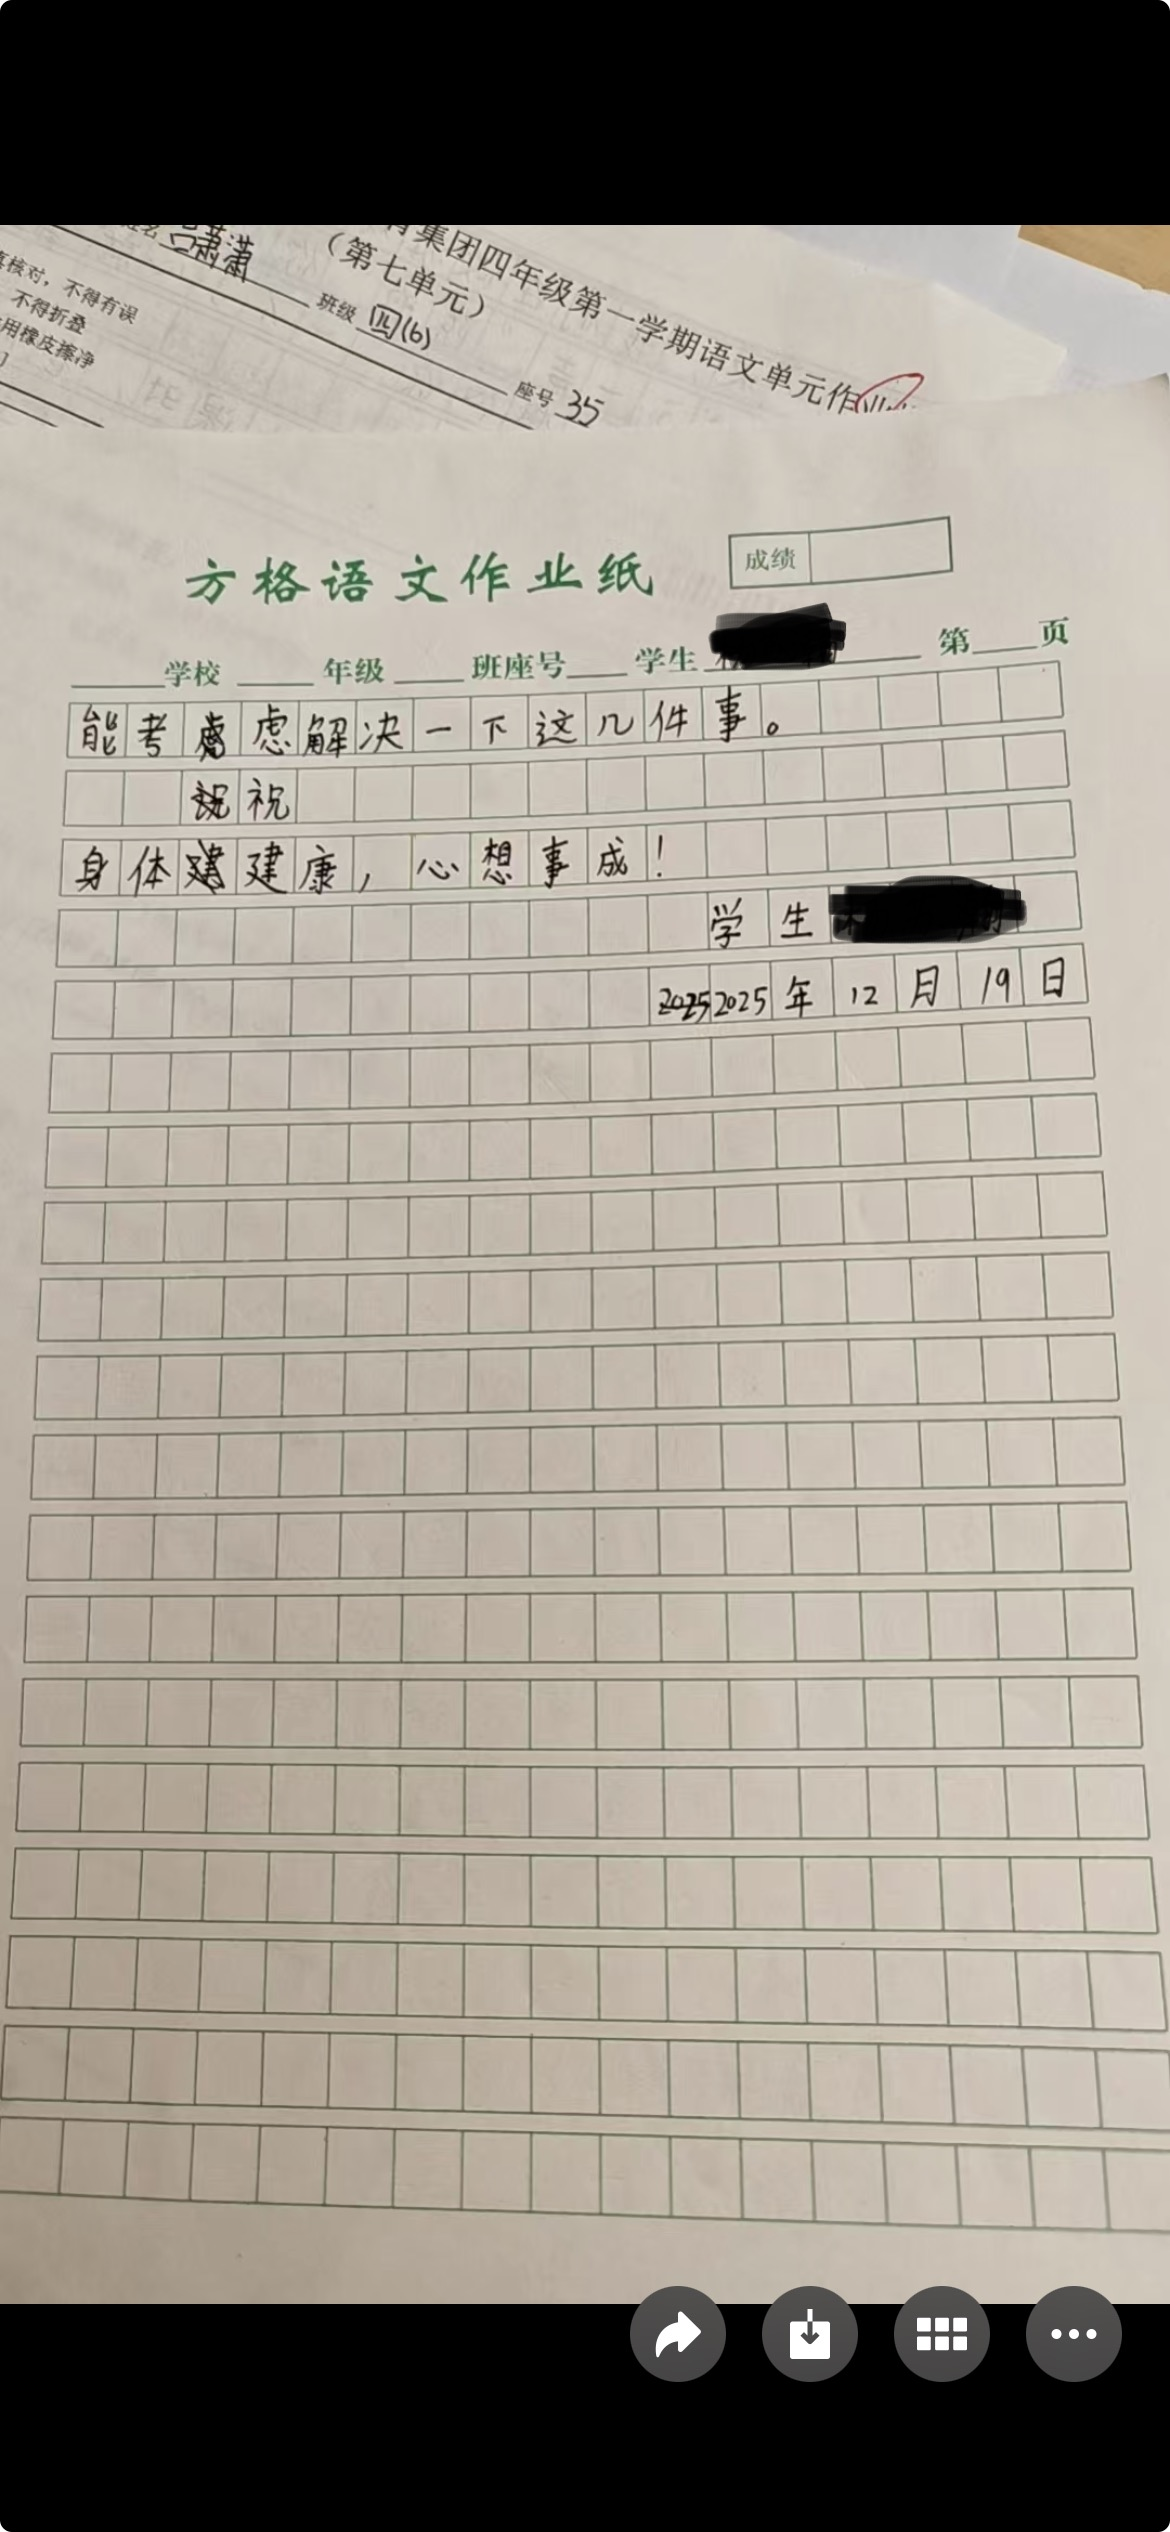 育集团四年级第一学期语文单元作业
（第七单元）
姓名 萧潇 班级 四(6) 座号 35
真核对，不得有误
不得折叠
用橡皮擦净
方格语文作业纸
成绩
学校 年级 班座号 学生 第 页
能考虑解决一下这几件事。
祝
身体建康，心想事成！
学生
2025年12月19日